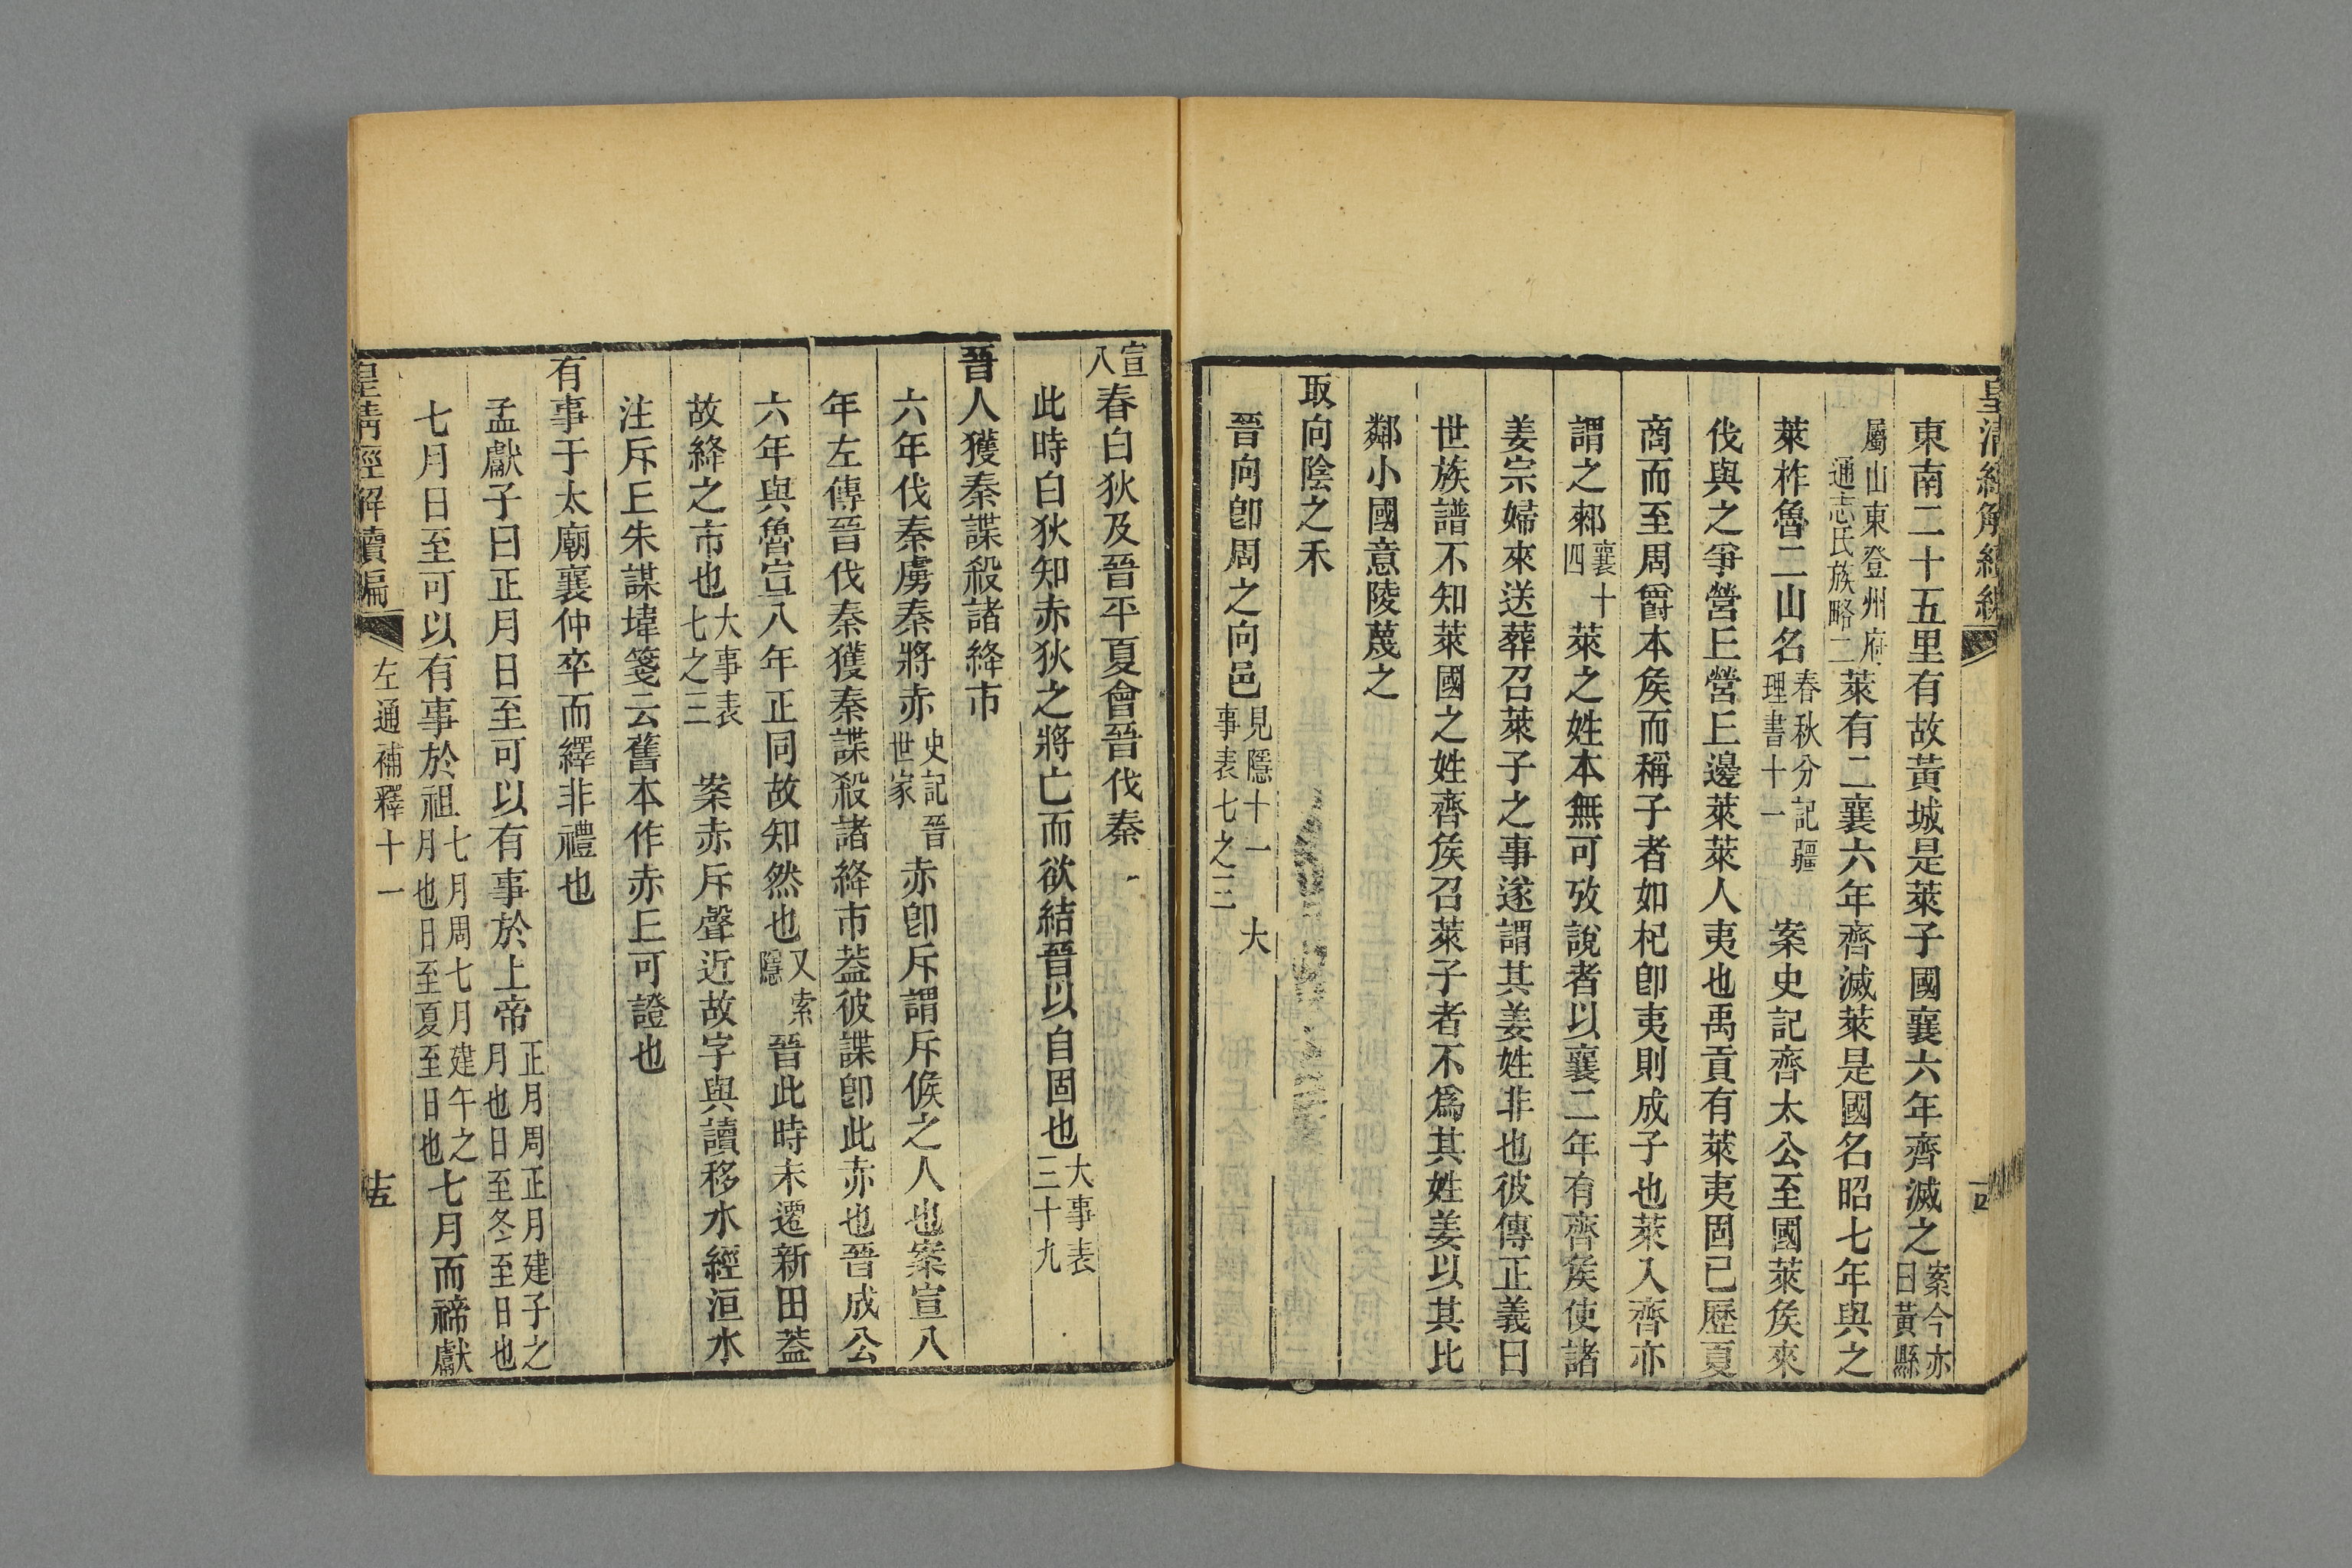 皇清經解續編
東南二十五里有故黃城是萊子國襄六年齊滅之案今亦曰黃縣
屬山東登州府通志氏族略二萊有二襄六年齊滅萊是國名昭七年與之
萊柞魯二山名春秋分記疆理書十一 案史記齊太公至國萊矦來
伐與之爭營丠營丠邊萊萊人夷也禹貢有萊夷固已歷夏
商而至周爵本矦而稱子者如杞卽夷則成子也萊入齊亦
謂之郲襄十四萊之姓本無可攷說者以襄二年有齊矦使諸
姜宗婦來送葬召萊子之事遂謂其姜姓非也彼傳正義曰
世族譜不知萊國之姓齊矦召萊子者不爲其姓姜以其比
鄰小國意陵蔑之
取向陰之禾
晉向卽周之向邑見隱十一大事表七之三
宣八春白狄及晉平夏會晉伐秦
此時白狄知赤狄之將亡而欲結晉以自固也大事表三十九
晉人獲秦諜殺諸絳市
六年伐秦虜秦將赤史記晉世家赤卽斥謂斥候之人也案宣八
年左傳晉伐秦獲秦諜殺諸絳市葢彼諜卽此赤也晉成公
六年與魯宣八年正同故知然也又索隱晉此時未遷新田葢
故絳之市也大事表七之三 案赤斥聲近故字與讀移水經洹水
注斥丠朱謀㙔箋云舊本作赤丠可證也
有事于太廟襄仲卒而繹非禮也
孟獻子曰正月日至可以有事於上帝正月周正月建子之月也日至冬至日也
七月日至可以有事於祖七月周七月建午之月也日至夏至日也七月而禘獻
皇清經解續編
左通補釋十一
十五